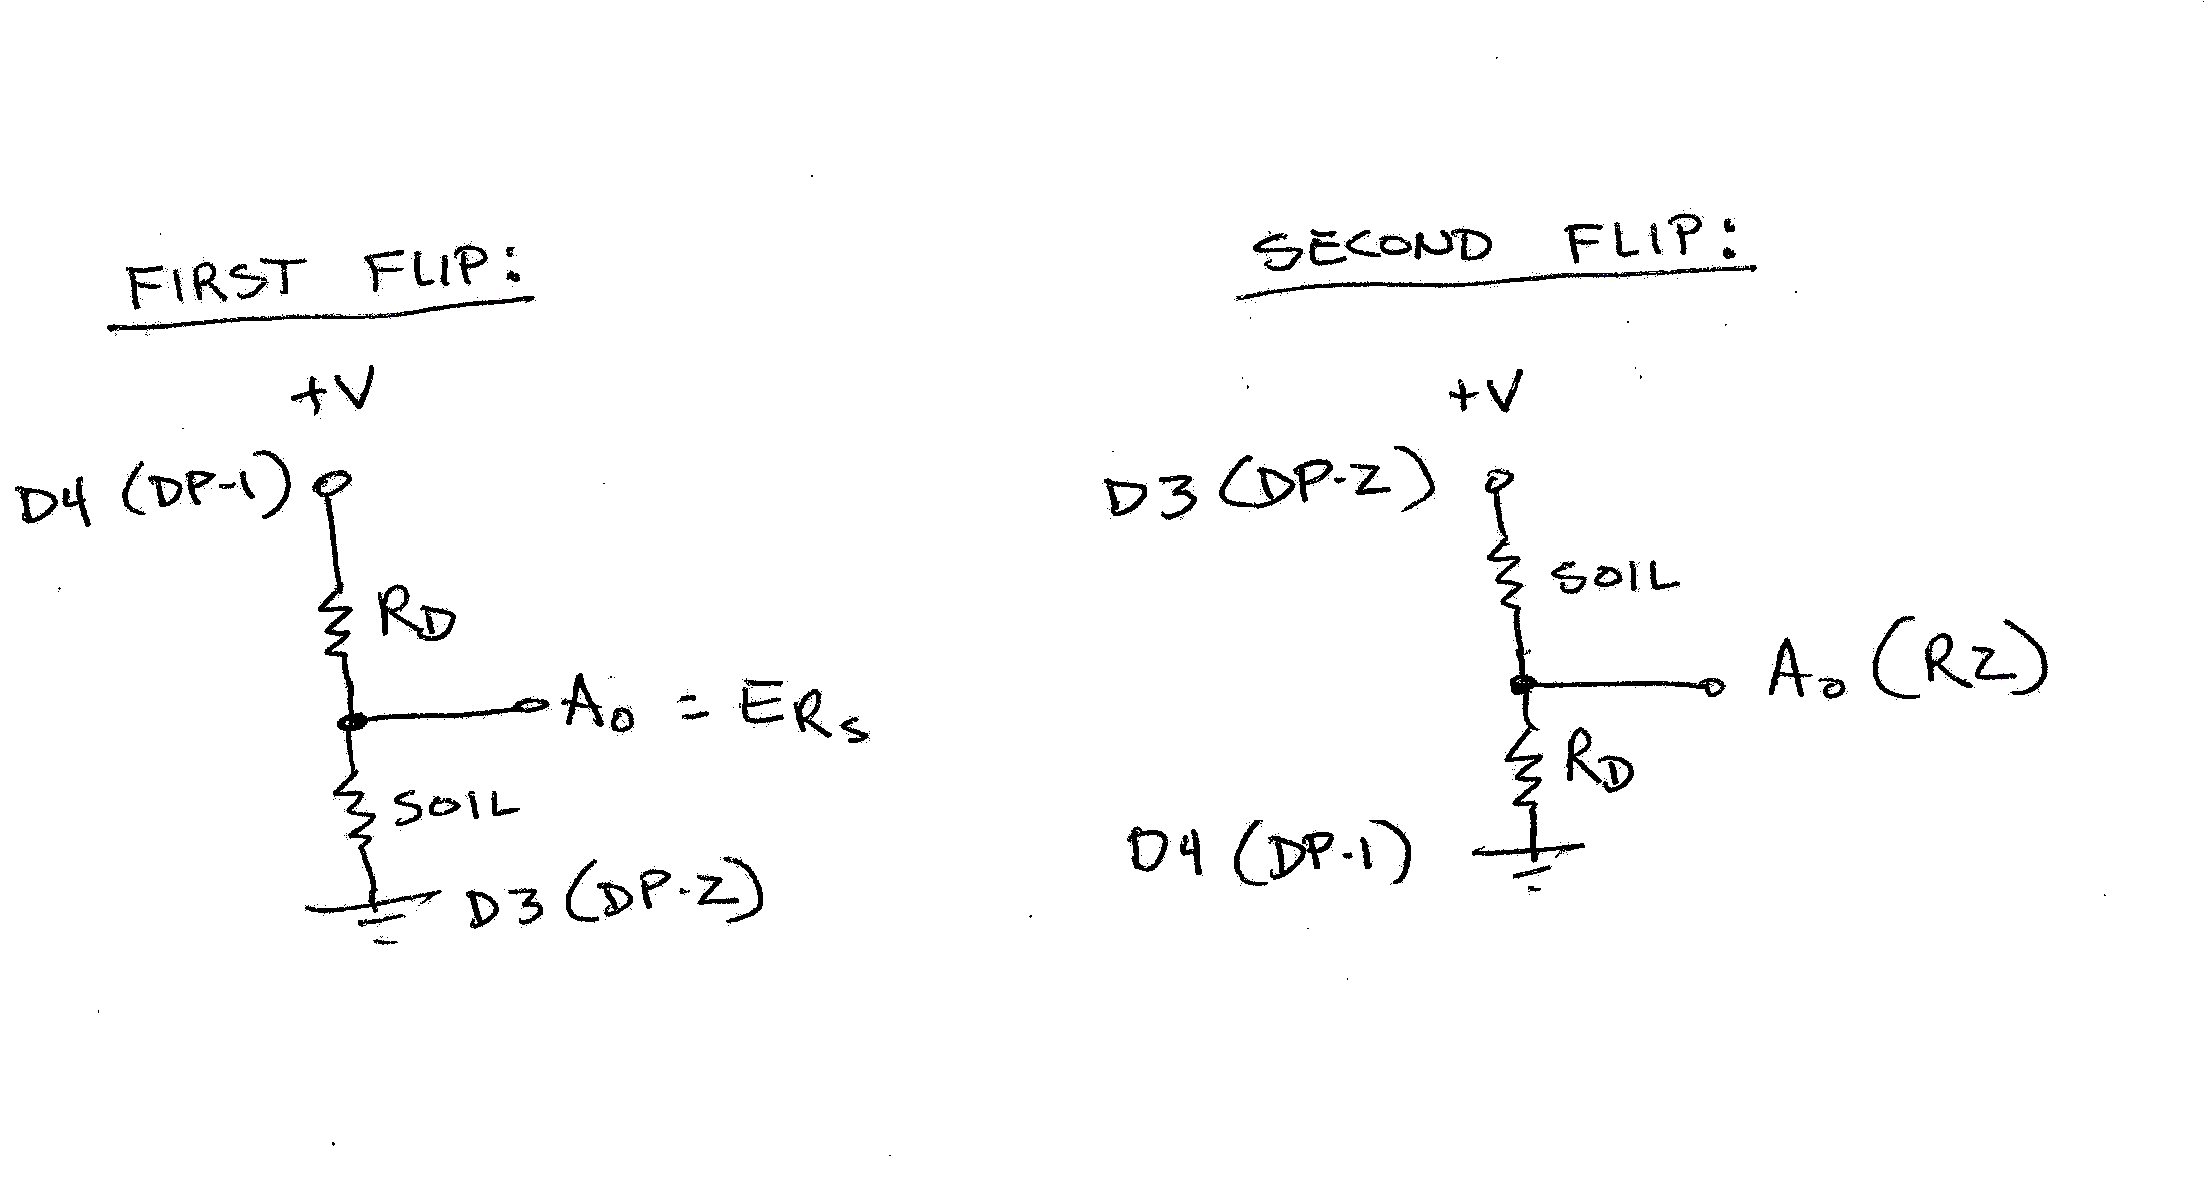 FIRST FLIP:
+V
D4 (DP-1)
RD
A0 = ERS
SOIL
D3 (DP-2)
SECOND FLIP:
+V
D3 (DP-2)
SOIL
A0 (R2)
RD
D4 (DP-1)